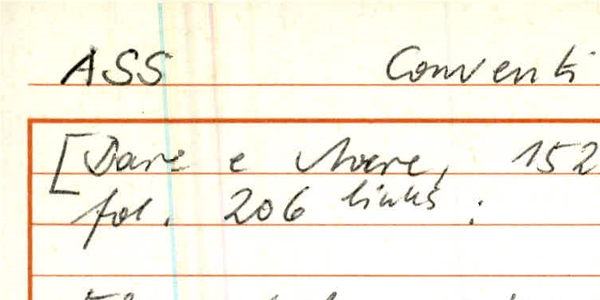 ASS Conventi
[Dare e Avere, 152
fol. 206 links: